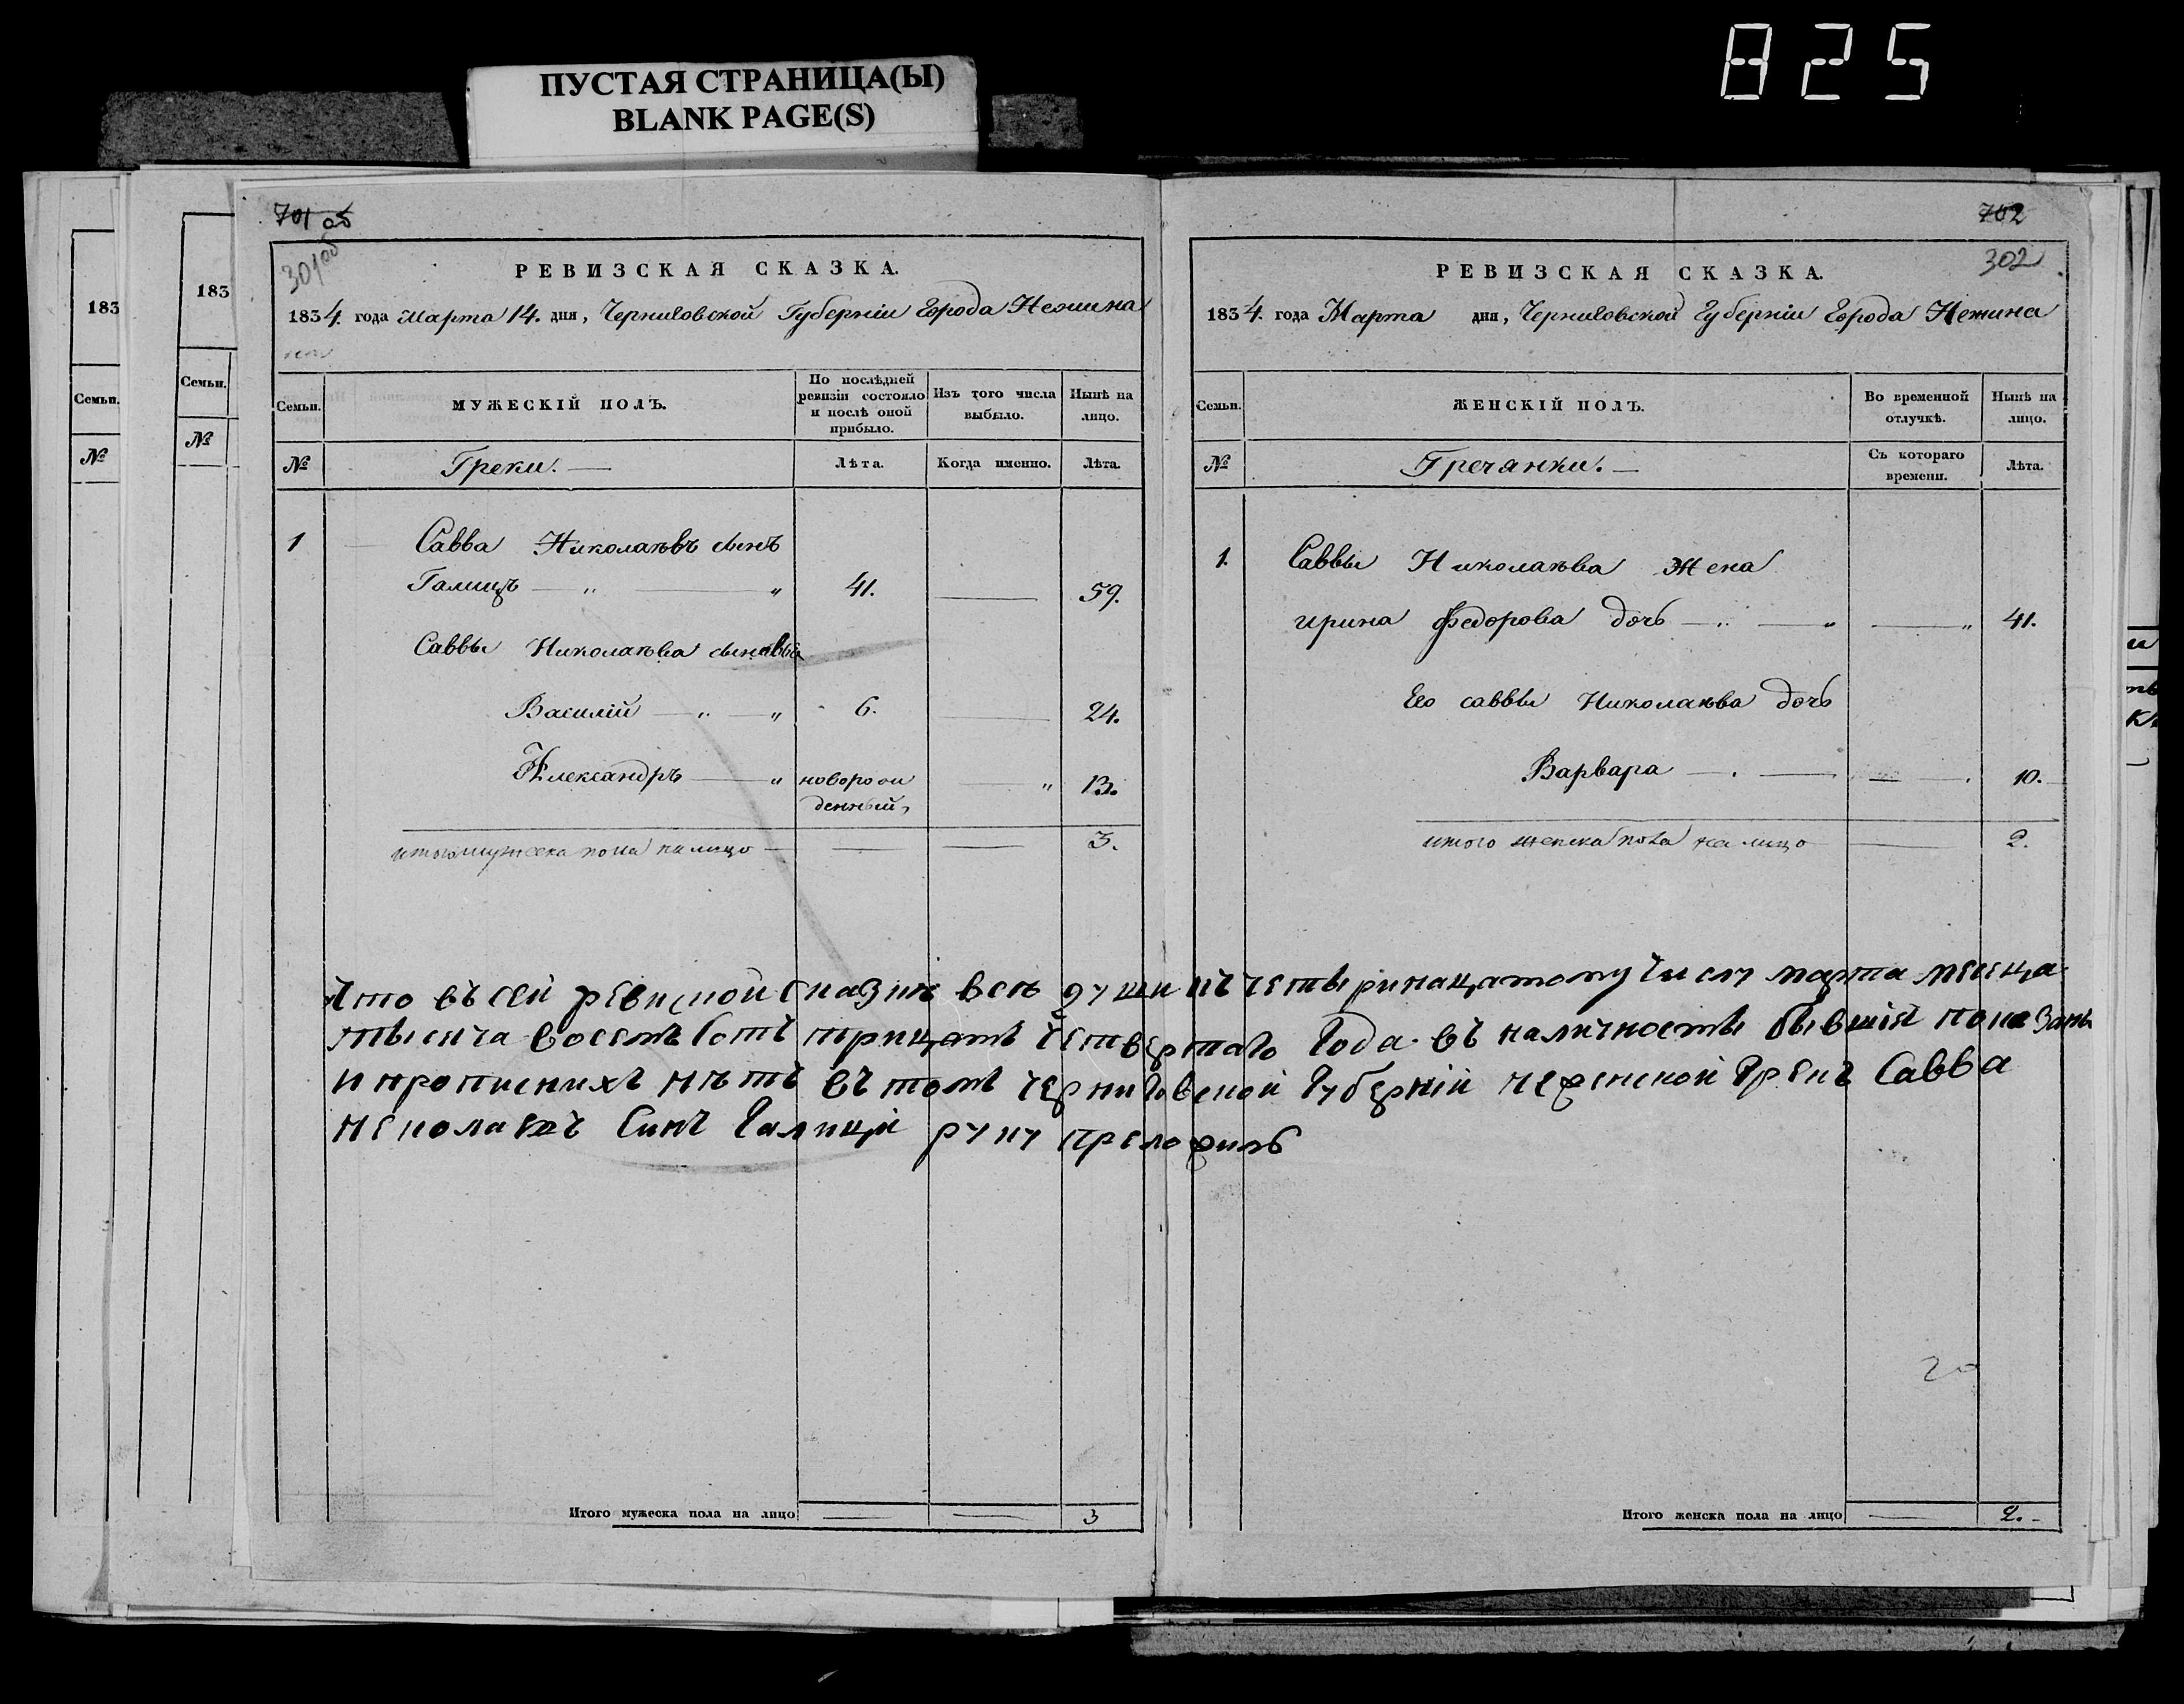 825
ПУСТАЯ СТРАНИЦА(Ы)
BLANK PAGE(S)
183
Семьи.
№
183
Семьи.
№
701 об
301 об
РЕВИЗСКАЯ СКАЗКА.
1834. года Марта 14. дня, Черниговской Губерніи Города Нежина
Семьи.
МУЖЕСКІЙ ПОЛЪ.
По послѣдней ревизіи состояло и послѣ оной прибыло.
Изъ того числа выбыло.
Нынѣ на лицо.
№
Греки. —
Лѣта.
Когда именно.
Лѣта.
1 Савва Николаевъ сынъ
Галицъ — „ — „ 41. — 59.
Саввы Николаева сыновья
Василій — „ — „ 6. — 24.
Александръ — „ новорож
денный, — „ 13.
итого мужеска пола на лицо — — — 3.
Итого мужеска пола на лицо — — 3
702
302
РЕВИЗСКАЯ СКАЗКА.
1834. года Марта дня, Черниговской Губерніи Города Нежина
Семьи.
ЖЕНСКІЙ ПОЛЪ.
Во временной отлучкѣ.
Нынѣ на лицо.
№
Гречанки. —
Съ котораго времени.
Лѣта.
1. Саввы Николаева Жена
ирина Федорова дочь — „ — „ — „ 41.
Его саввы Николаева дочь
Варвара — . — — . 10.
итого женска пола на лицо — 2.
Что въ сей ревиской сказки всѣ души къ четыринацатому числу марта месица
тысича восемъ сотъ трицатъ четвертаго года въ наличности бывшія показаны
и прописнихъ нѣтъ въ томъ черниговской губерніи неженской грекъ Савва
Неколаевъ Синъ Галици руку преложилъ
20
Итого женска пола на лицо — 2. -